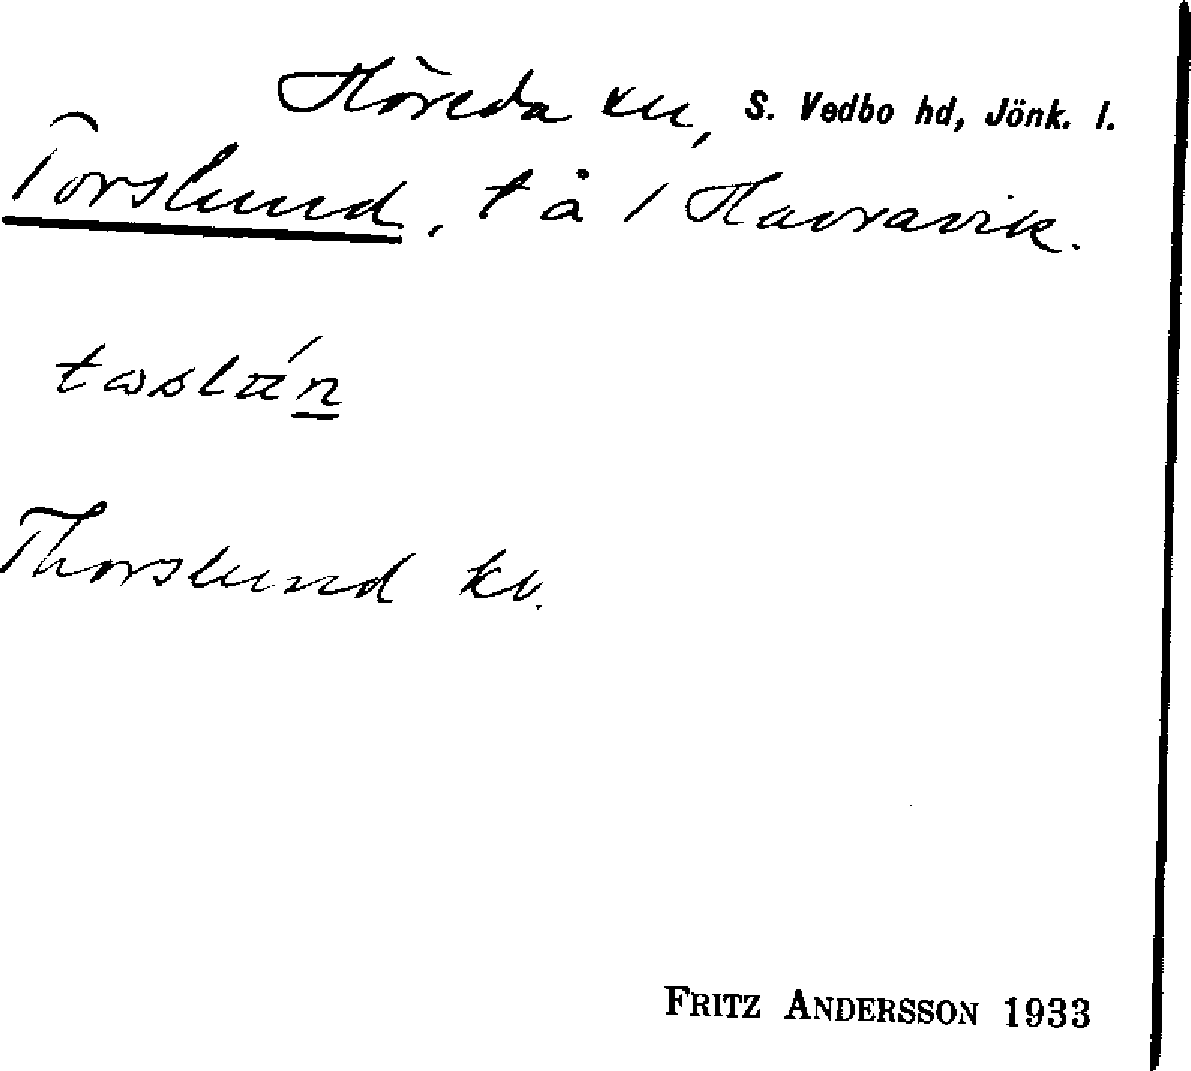 Höreda sn, S. Vedbo hd, Jönk. l.
Torslund, t å 1 Havravik.
Thorslund kv.
FRITZ ANDERSSON 1933